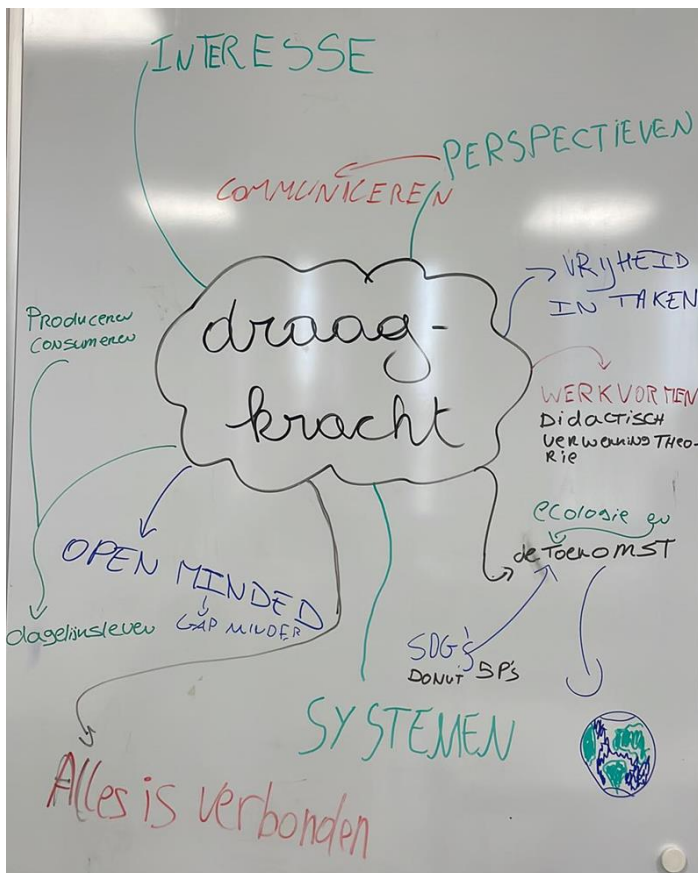 INTERESSE
PERSPECTIEVEN
COMMUNICEREN
draag-
kracht
VRIJHEID
IN TAKEN
PRODUCEREN
CONSUMEREN
WERKVORMEN
DIDACTISCH
VERWERKING THEO-
RIE
ecologie en
de TOEKOMST
OPEN MINDED
GAP MINDER
dagelijksleven
SDG's
DONUT 5P's
SYSTEMEN
Alles is verbonden